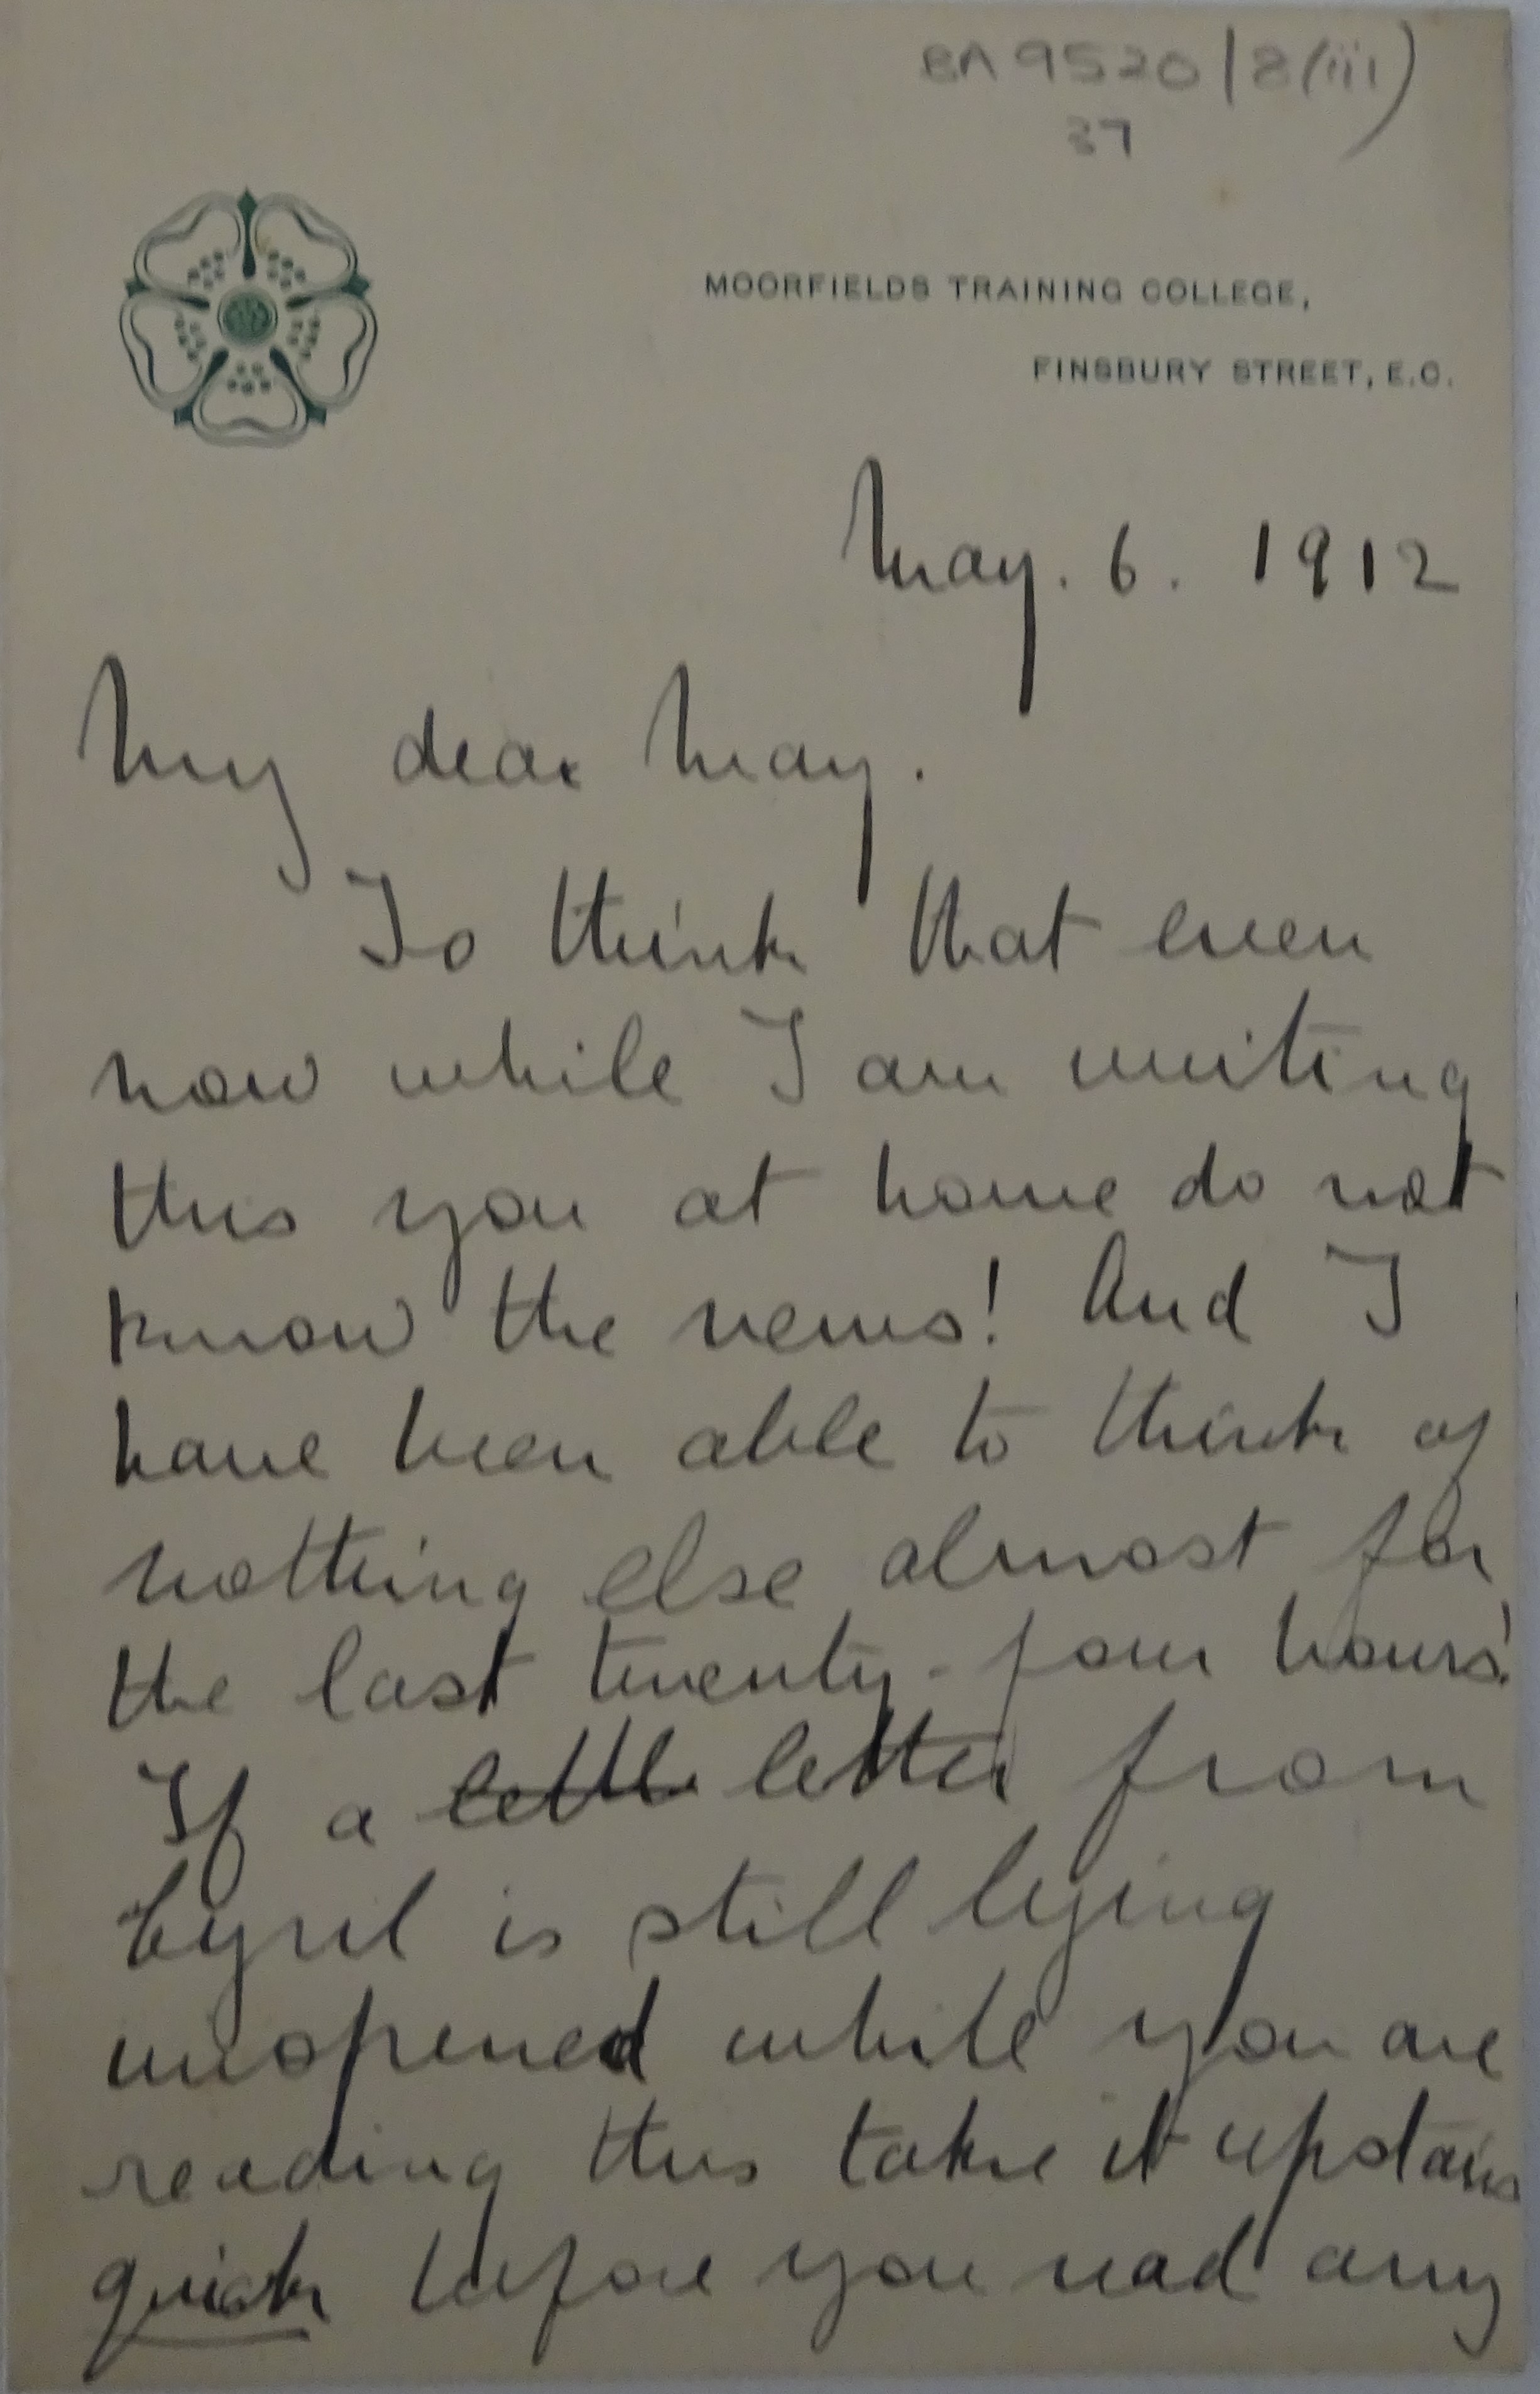 BA 9520/8(iii)
37
MOORFIELDS TRAINING COLLEGE,
FINSBURY STREET, E.C.
May. 6. 1912
My dear May.
To think that even
now while I am writing
this you at home do not
know the news! And I
have been able to think of
nothing else almost for
the last twenty-four hours!
If a letter from
Cyril is still lying
unopened while you are
reading this take it upstairs
quick before you read any